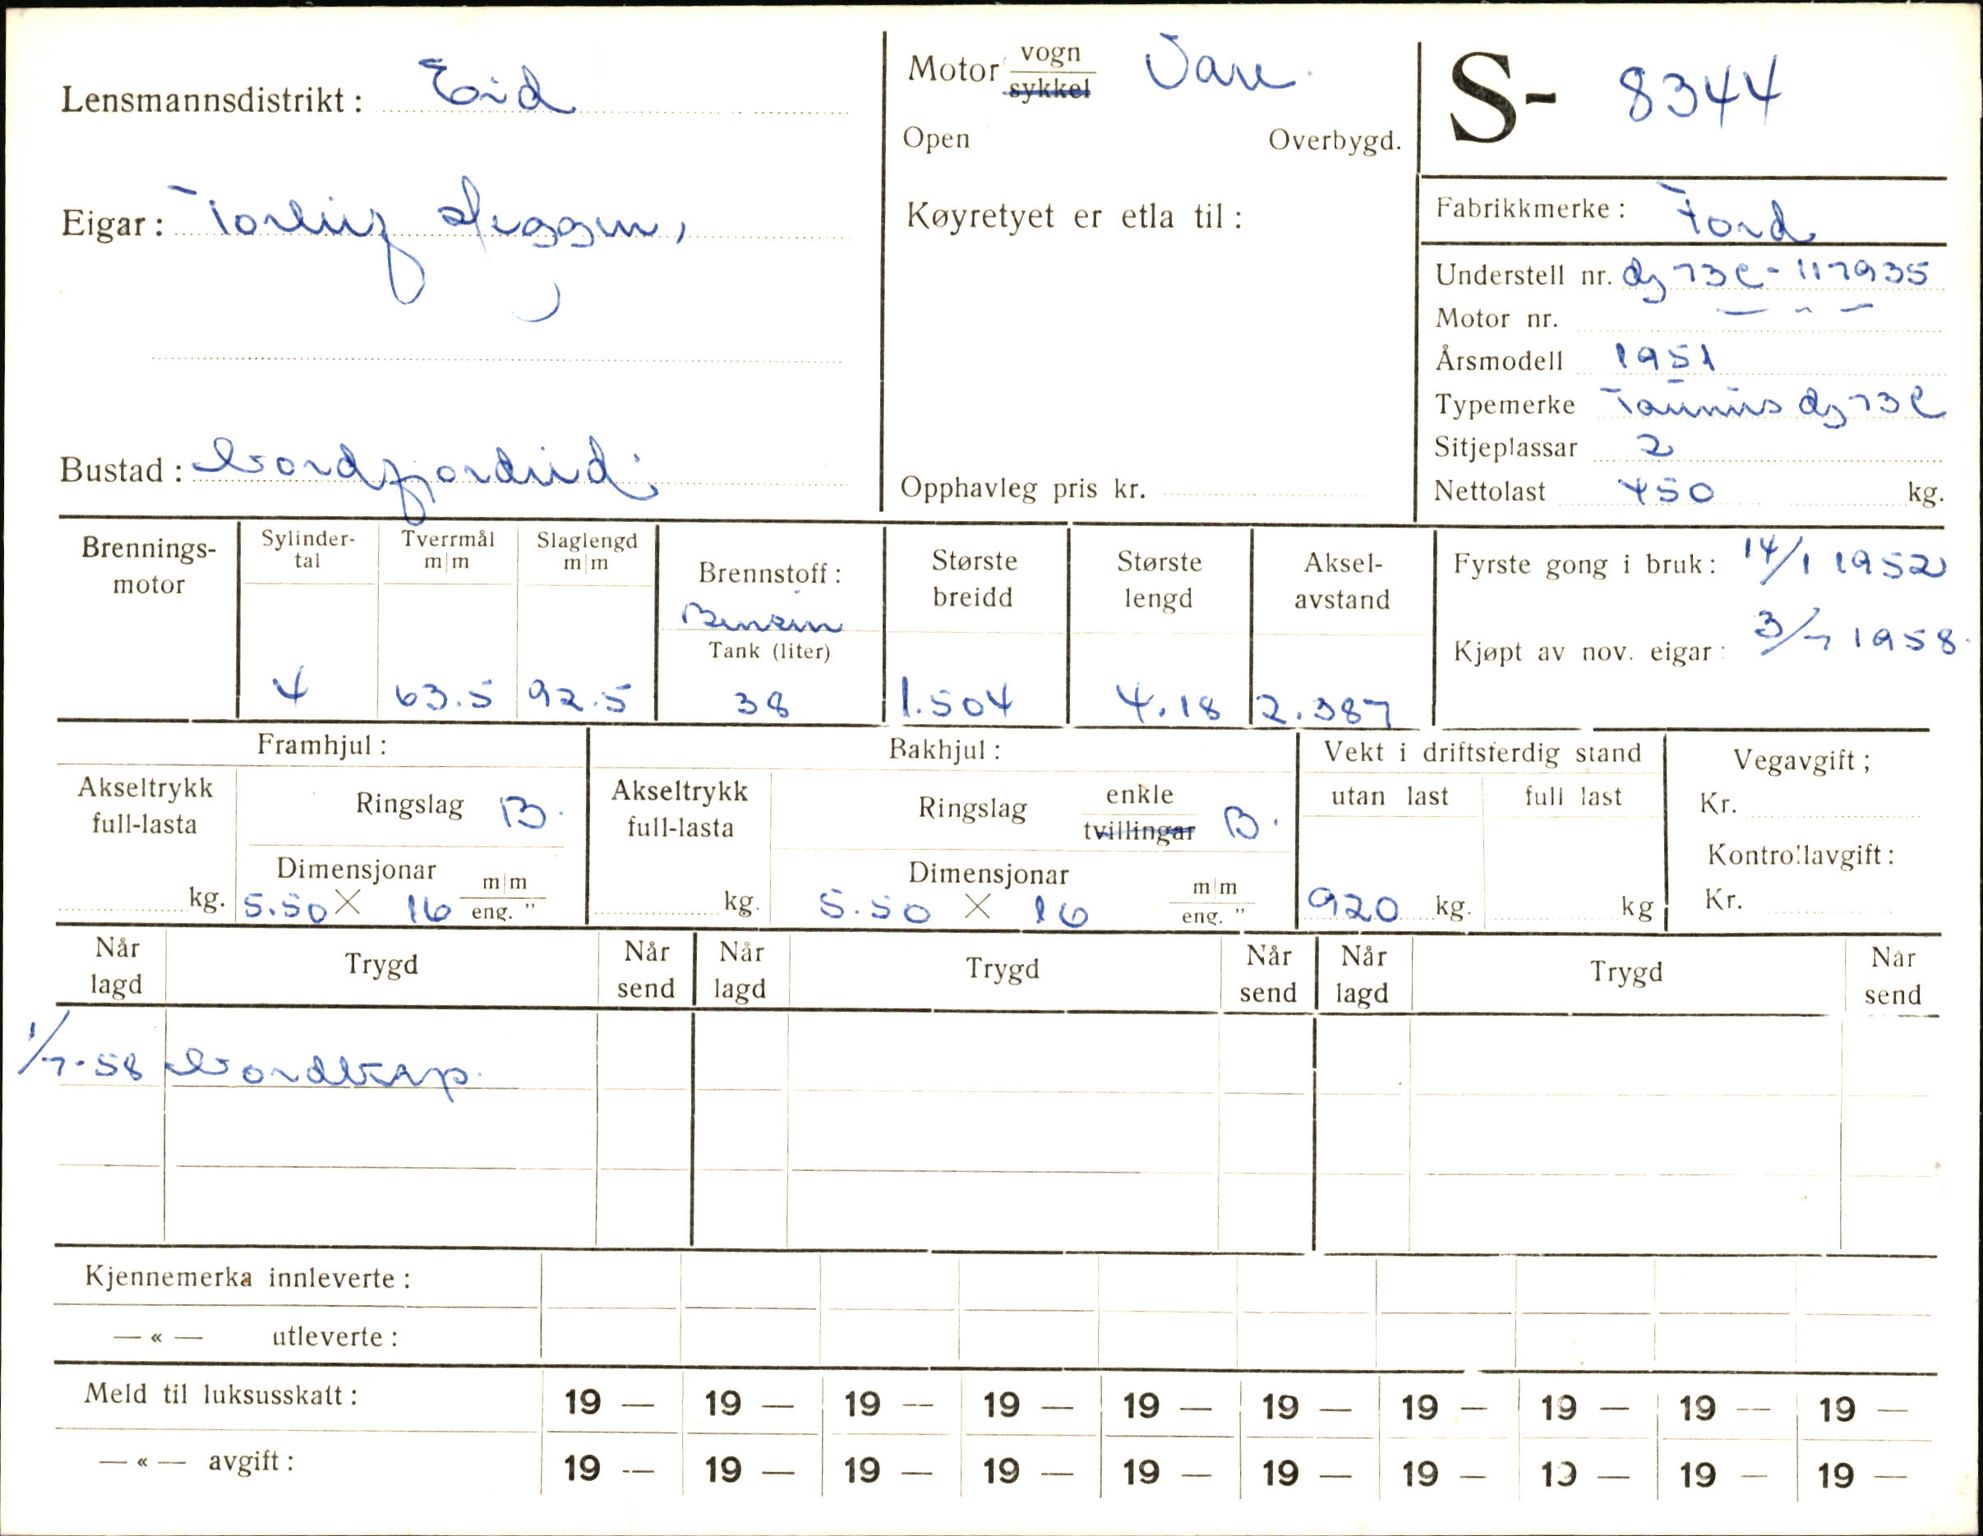 Lensmannsdistrikt: Eid
Eigar: Torleif Heggen,
Bustad: Nordfjordeid.
Motor vogn Vare.
sykkel
Open Overbygd.
Køyretyet er etla til:
Opphavleg pris kr.
S- 8344
Fabrikkmerke: Ford
Understell nr. dg 73C - 117935
Motor nr. — " —
Årsmodell 1951
Typemerke Taunus dg 73C
Sitjeplassar 2
Nettolast 450 kg.
Brennings-
motor
Sylinder-
tal
4
Tverrmål
m|m
63.5
Slaglengd
m|m
92.5
Brennstoff:
Bensin
Tank (liter)
38
Største
breidd
1.504
Største
lengd
4.18
Aksel-
avstand
2.387
Fyrste gong i bruk: 14/1 1952
Kjøpt av nov. eigar: 3/7 1958.
Framhjul:
Akseltrykk
full-lasta
kg.
Ringslag B.
Dimensjonar
5.50 × 16 m|m
eng. "
Bakhjul:
Akseltrykk
full-lasta
kg.
Ringslag enkle B.
tvillingar
Dimensjonar
5.50 × 16 m|m
eng. "
Vekt i driftsferdig stand
utan last full last
920 kg. kg
Vegavgift;
Kr.
Kontrollavgift:
Kr.
Når
lagd Trygd Når
send Når
lagd Trygd Når
send Når
lagd Trygd Når
send
1/7-58 Nordkap.
Kjennemerka innleverte:
— « — utleverte:
Meld til luksusskatt: 19 — 19 — 19 — 19 — 19 — 19 — 19 — 19 — 19 — 19 —
— « — avgift: 19 — 19 — 19 — 19 — 19 — 19 — 19 — 19 — 19 — 19 —